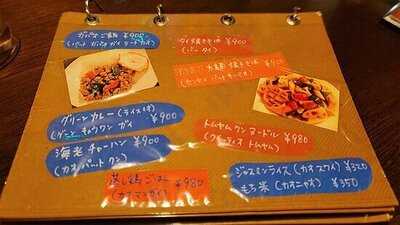 ガパオご飯 ¥900
(パット ガパオ ガイ ラート カオ)
グリーンカレー(ライス付)
¥900
(ゲーン キョウワン ガイ)
海老チャーハン
¥900
(カオ パット クン)
タイ焼きそば ¥900
(パッタイ)
太麺 焼きそば ¥900
トムヤムクン ヌードル
¥980
トムヤム)
蒸し鶏ごはん
¥980
(カオマンガイ)
ジャスミンライス(カオスワイ) ¥320
もち米 (カオニャオ) ¥350